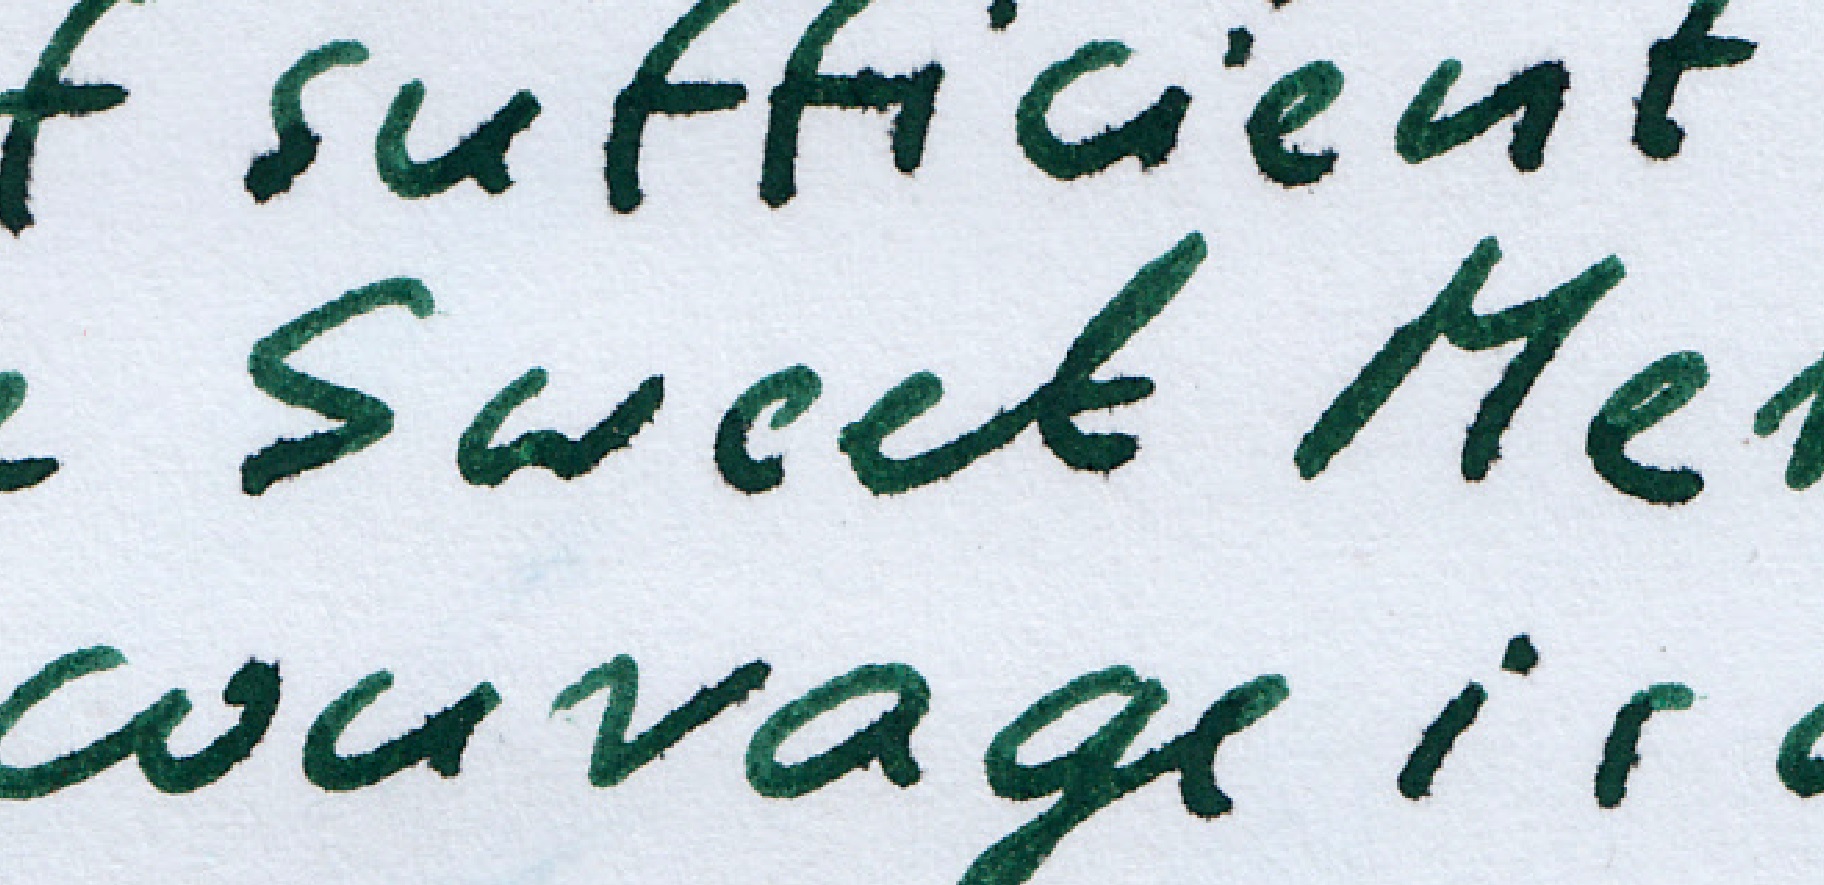 f sufficient
e Sweet Mer
courage is a